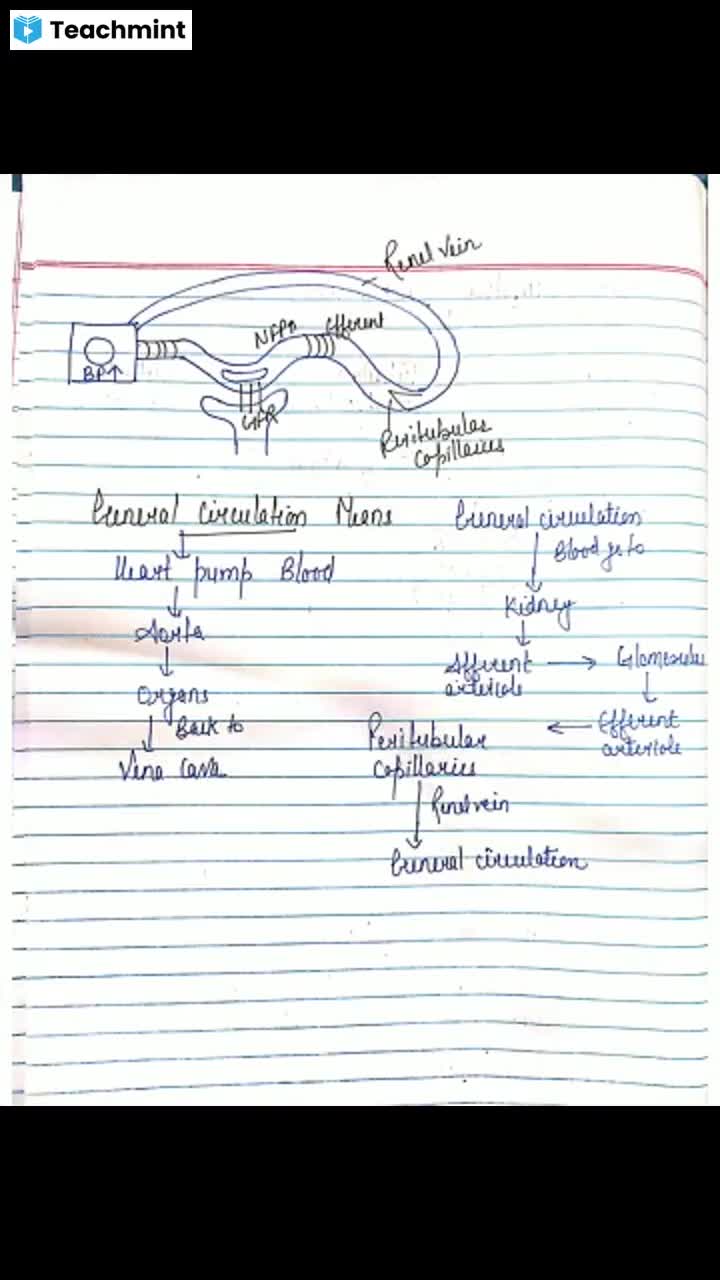 Teachmint
Renel vein
NFP↑
Efferent
BP↑
GFR
Peritubular
Capillaries
General circulation Means
General circulation
Blood go to
Heart pump Blood
Kidney
Aorta
Afferent → Glomerulus
arteriole
Organs
Back to
Efferent
arteriole
Peritubular
Capillaries
Vena Cava
Renel vein
General circulation